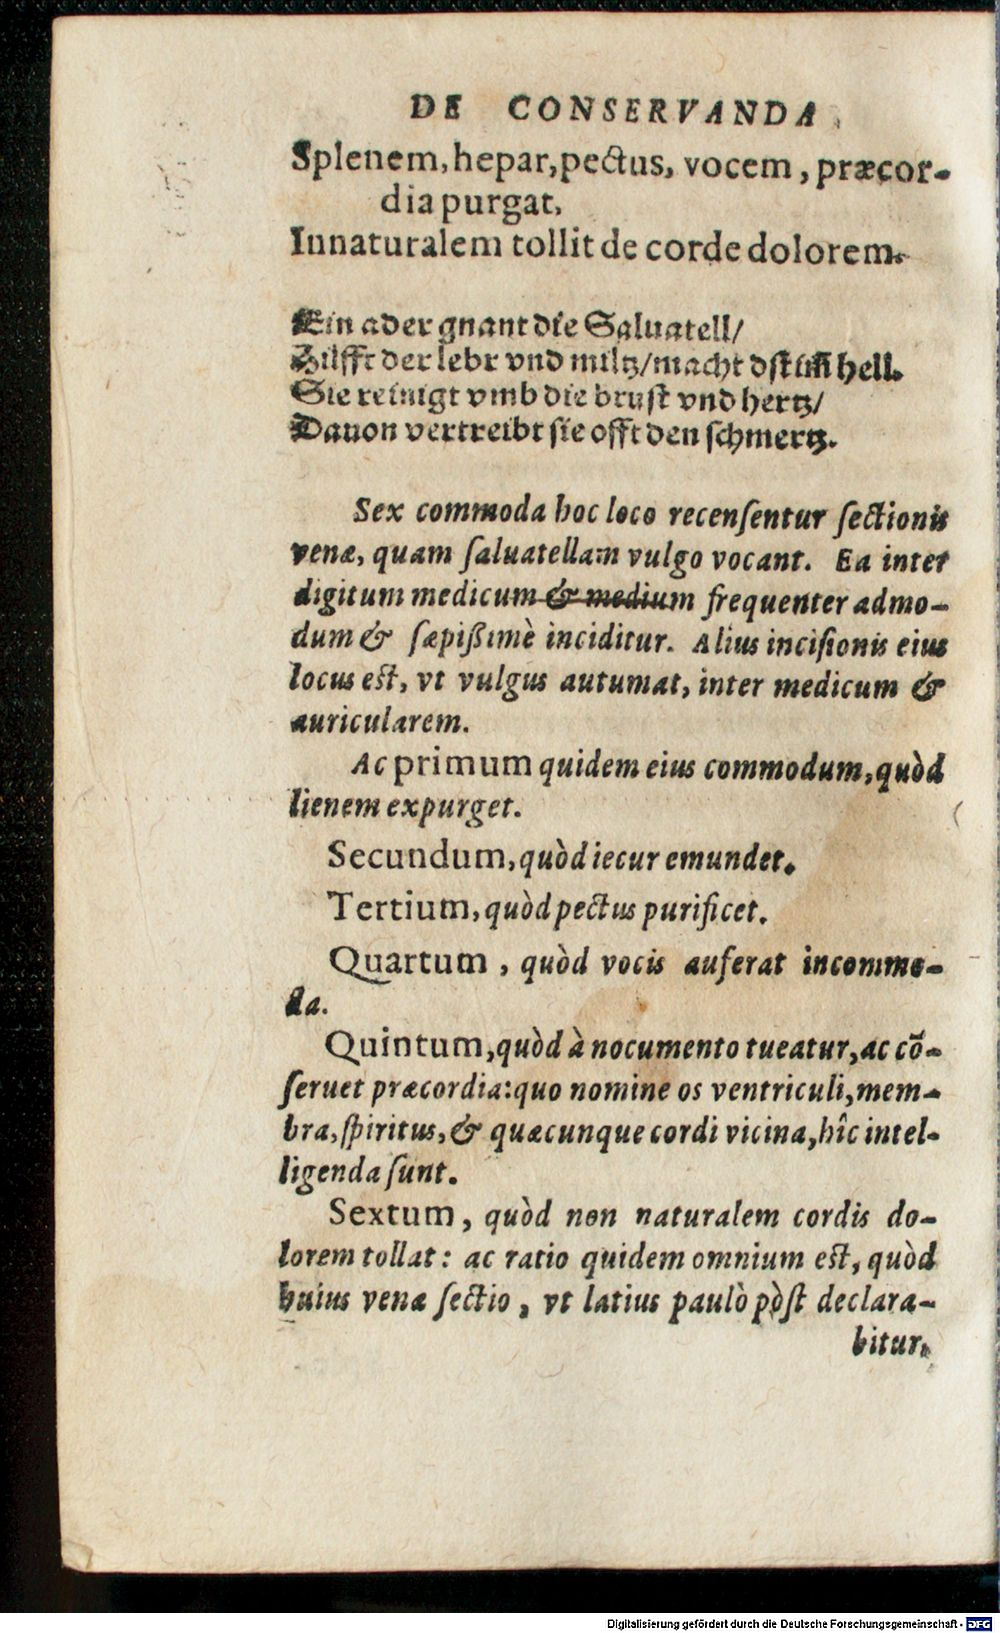 DE CONSERVANDA
Splenem, hepar, pectus, vocem, præcor-
dia purgat,
Innaturalem tollit de corde dolorem.
Ein ader gnant die Saluatell/
Hilfft der lebr vnd miltz/macht dſtim̃ hell.
Sie reinigt vmb die bruſt vnd hertz/
Dauon vertreibt ſie offt den ſchmertz.
Sex commoda hoc loco recenſentur ſectionis
venæ, quam ſaluatellam vulgo vocant. Ea inter
digitum medicum & medium frequenter admo-
dum & ſæpißimè inciditur. Alius inciſionis eius
locus eſt, vt vulgus autumat, inter medicum &
auricularem.
Ac primum quidem eius commodum, quòd
lienem expurget.
Secundum, quòd iecur emundet.
Tertium, quòd pectus purificet.
Quartum, quòd vocis auferat incommo-
da.
Quintum, quòd à nocumento tueatur, ac cõ-
ſeruet præcordia: quo nomine os ventriculi, mem-
bra, ſpiritus, & quæcunque cordi vicina, hîc intel-
ligenda ſunt.
Sextum, quòd non naturalem cordis do-
lorem tollat: ac ratio quidem omnium eſt, quòd
huius venæ ſectio, vt latius paulò pòſt declara-
bitur,
Digitalisierung gefördert durch die Deutsche Forschungsgemeinschaft - DFG